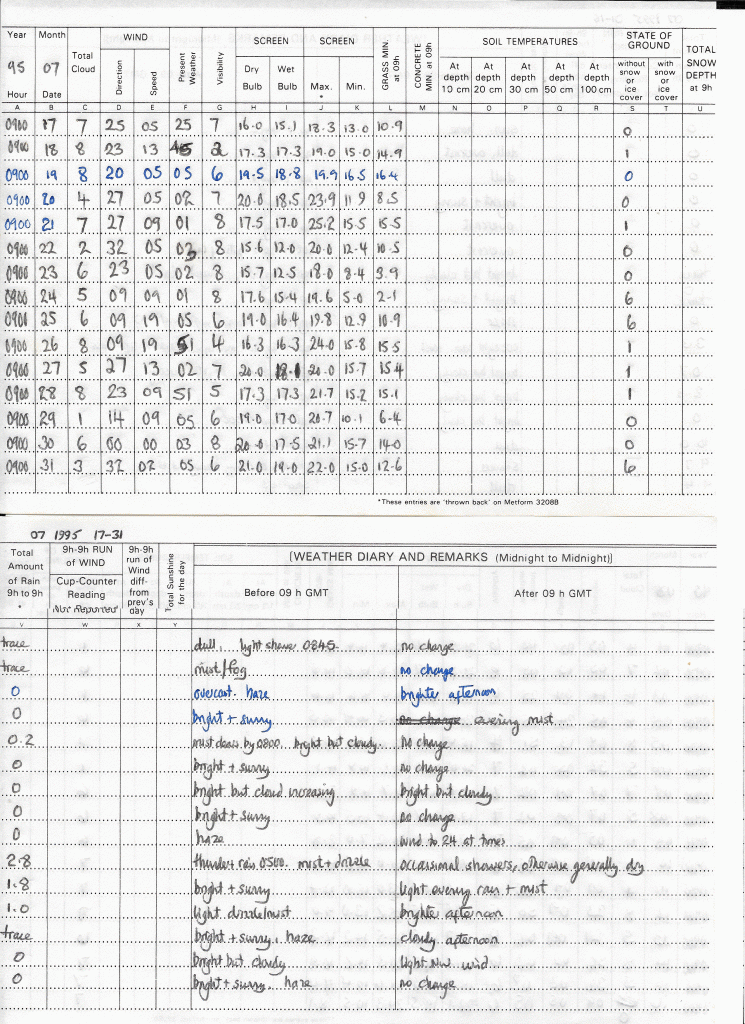 Year Month Total Cloud WIND Present Weather Visibility SCREEN SCREEN GRASS MIN. at 09h CONCRETE MIN. at 09h SOIL TEMPERATURES STATE OF GROUND TOTAL SNOW DEPTH at 9h
95 07 Direction Speed Dry Bulb Wet Bulb Max. * Min. At depth 10 cm At depth 20 cm At depth 30 cm At depth 50 cm At depth 100 cm without snow or ice cover with snow or ice cover
Hour Date
A B C D E F G H I J K L M N O P Q R S T U
0900 17 7 25 05 25 7 16.0 15.1 18.3 13.0 10.9 0
0900 18 8 23 13 45 2 17.3 17.3 19.0 15.0 14.9 1
0900 19 8 20 05 05 6 19.5 18.8 19.9 16.5 16.4 0
0900 20 4 27 05 02 7 20.0 18.5 23.9 11 9 8.5 0
0900 21 7 27 09 01 8 17.5 17.0 25.2 15.5 15.5 1
0900 22 2 32 05 03 8 15.6 12.0 20.0 12.4 10.5 0
0900 23 6 23 05 02 8 15.7 12.5 18.0 8.4 3.9 0
0900 24 5 09 09 01 8 17.6 15.4 19.6 5.0 2.1 6
0900 25 6 09 19 05 6 19.0 16.4 19.8 12.9 10.9 6
0900 26 8 09 19 51 4 16.3 16.3 24.0 15.8 15.5 1
0900 27 5 27 13 02 7 20.0 18.1 20.0 15.7 15.4 1
0900 28 8 23 09 51 5 17.3 17.3 21.7 15.2 15.1 1
0900 29 1 14 09 05 6 19.0 17.0 20.7 10.1 6.4 0
0900 30 6 00 00 03 8 20.0 17.5 21.1 15.7 14.0 0
0900 31 3 32 02 05 6 21.0 19.0 22.0 15.0 12.6 6
*These entries are 'thrown back' on Metform 3208B
07 1995 17-31
Total Amount of Rain 9h to 9h * 9h-9h RUN of WIND Cup-Counter Reading Not Reported 9h-9h run of Wind diff- from prev's day Total Sunshine for the day (WEATHER DIARY AND REMARKS (Midnight to Midnight))
Before 09 h GMT After 09 h GMT
V W X Y
trace dull, light shower 0845. no change
trace mist/fog no change
0 overcast. haze brighter afternoon
0 bright + sunny no change evening mist
0.2 mist clears by 0800. bright but cloudy. No change
0 bright + sunny no change
0 bright but cloud increasing bright but cloudy
0 bright + sunny no change
0 haze wind to 24 at times
2.8 thunder + rain 0500. mist + drizzle occassional showers, otherwise generally dry
1.8 bright + sunny light evening rain + mist
1.0 light drizzle/mist brighter afternoon
trace bright + sunny, haze cloudy afternoon
0 bright but cloudy light NW wind
0 bright + sunny. haze no change